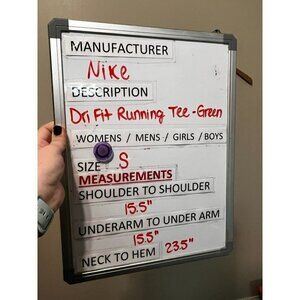 MANUFACTURER
Nike
DESCRIPTION
Dri Fit Running Tee - Green
WOMENS / MENS / GIRLS / BOYS
SIZE S
MEASUREMENTS
SHOULDER TO SHOULDER
15.5"
UNDERARM TO UNDER ARM
15.5"
NECK TO HEM 23.5"